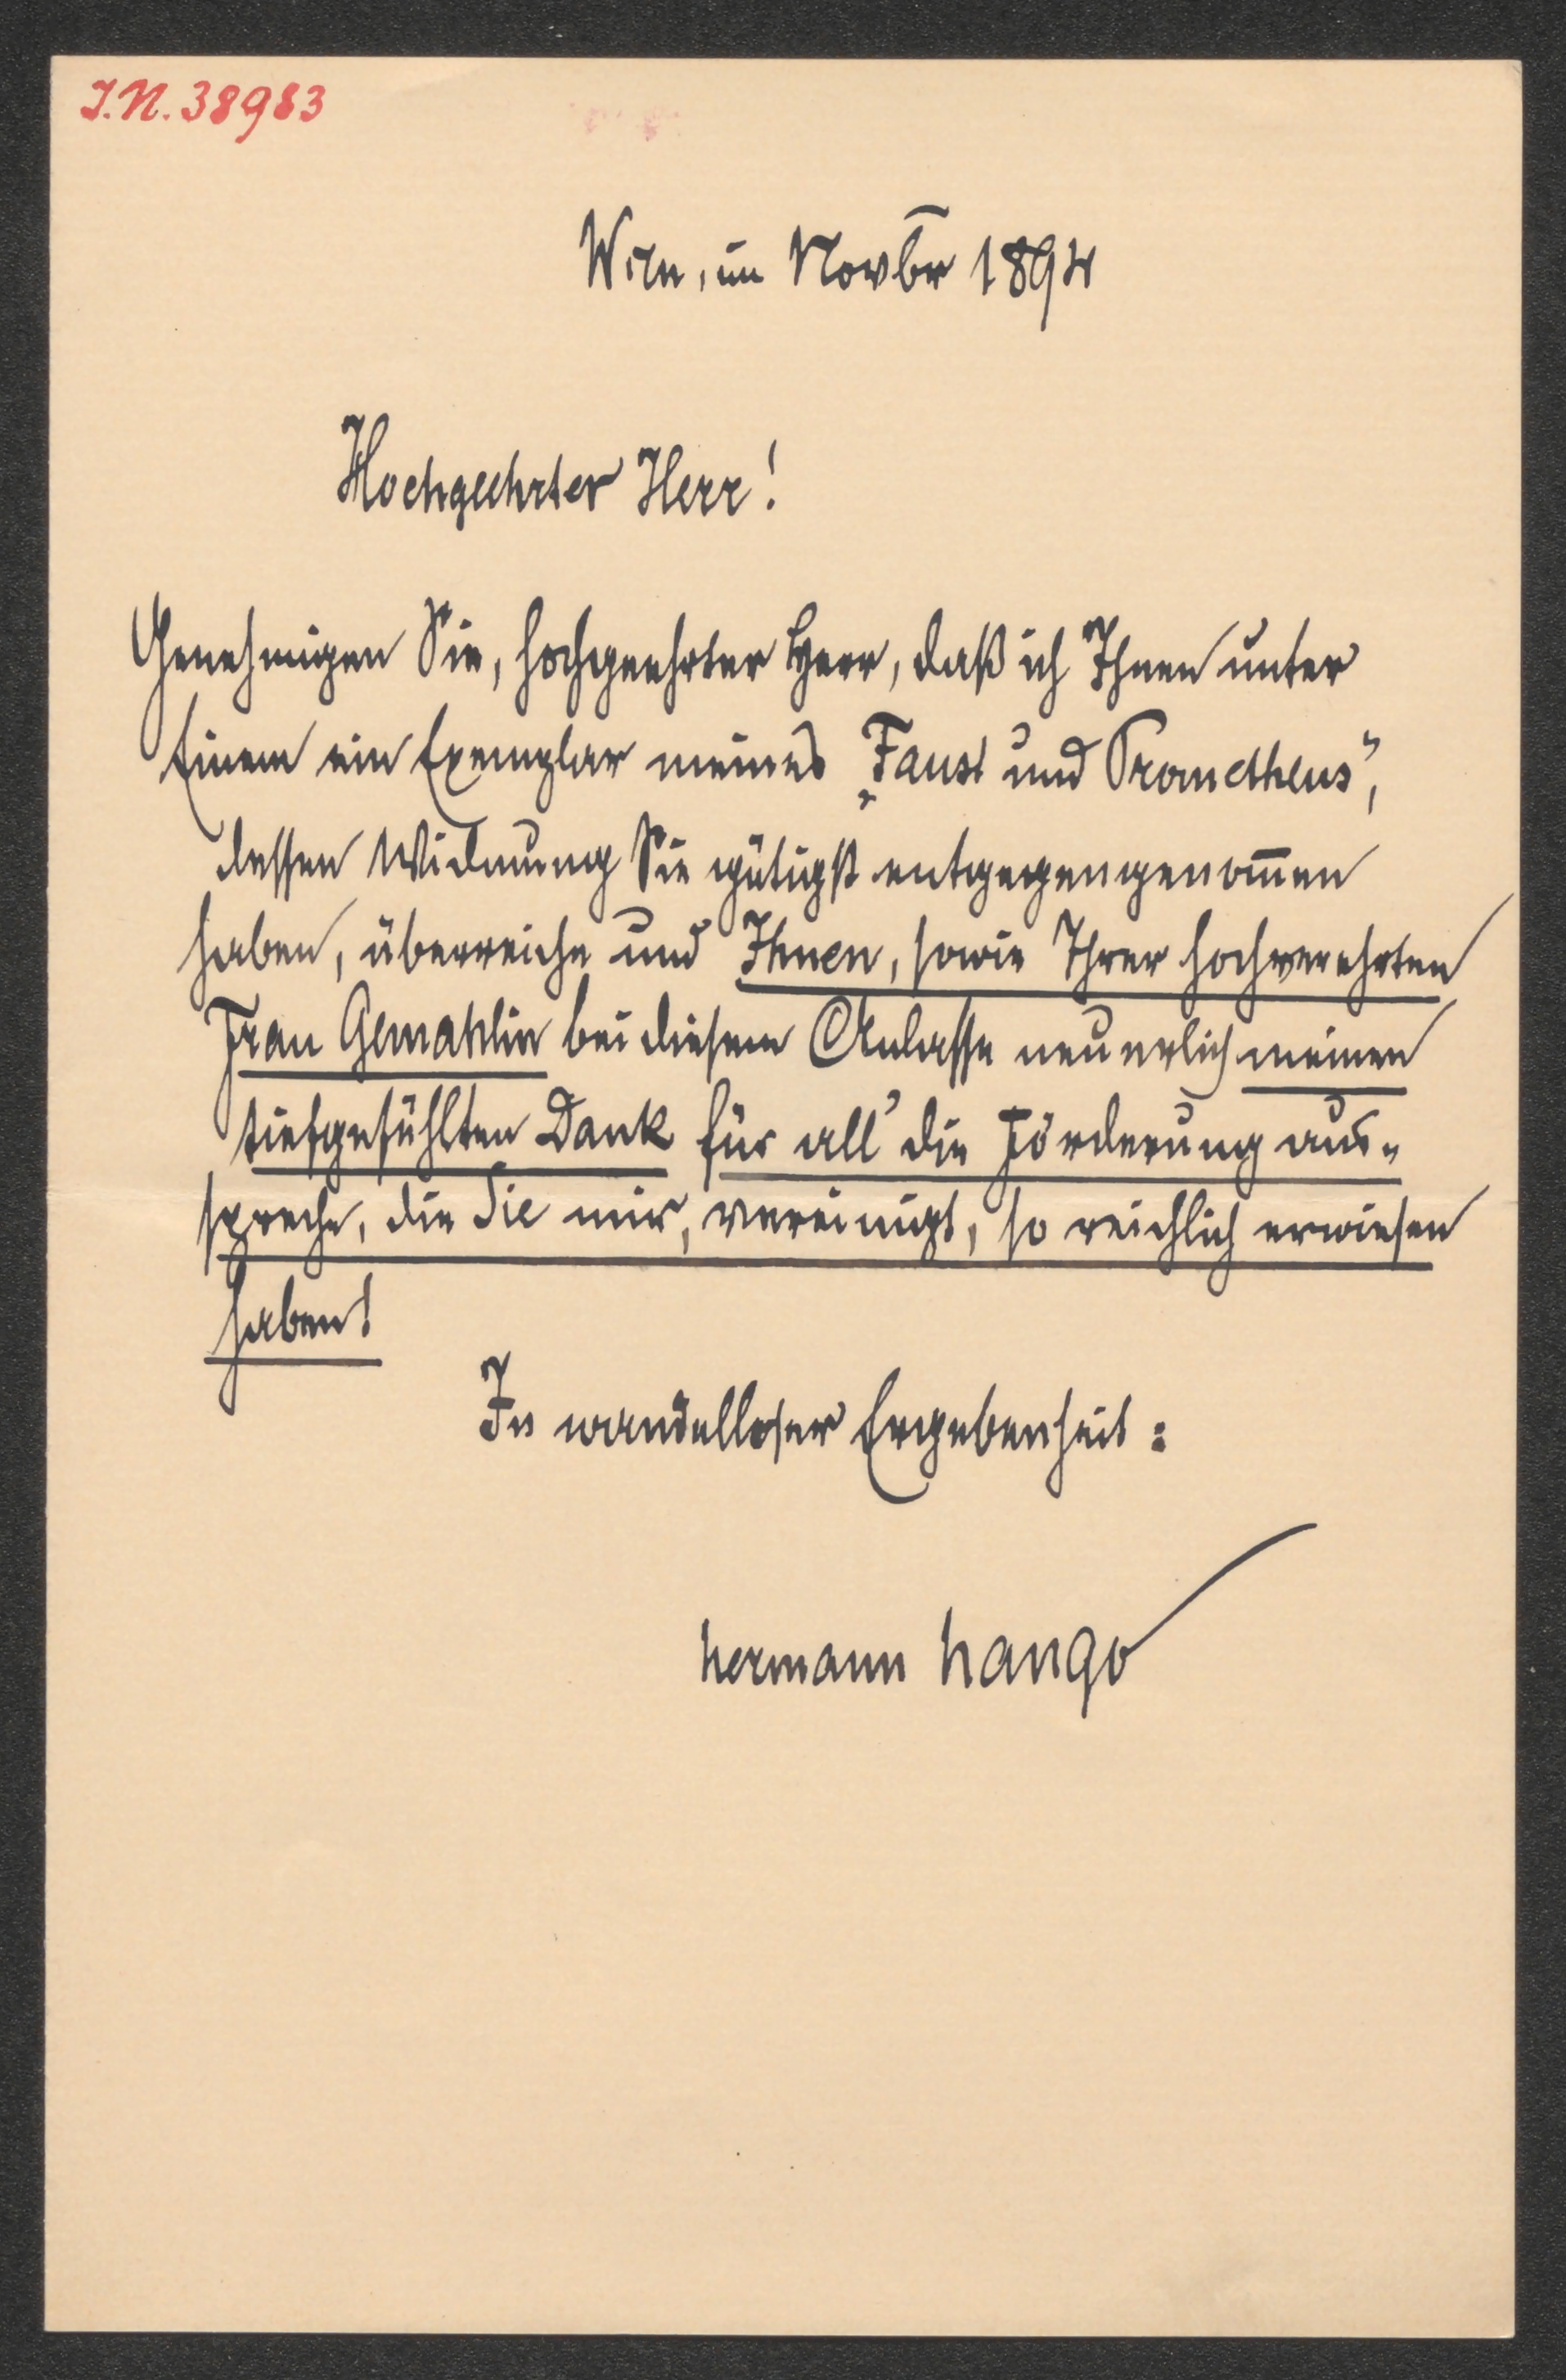 I.N. 38983
Wien, im Novbr 1894
Hochgeehrter Herr!
Genehmigen Sie, hochgeehrter Herr, daß ich Ihnen unter
Einem ein Exemplar meines „Faust und Prometheus“,
dessen Widmung Sie gütigst entgegengenom̅en
haben, überreiche und Ihnen, sowie Ihrer hochverehrten
Frau Gemahlin bei diesem Anlasse neuerlich meinen
tiefgefühlten Dank für all' die Förderung aus-
spreche, die Sie mir, vereinigt, so reichlich erwiesen
haben!
In wandelloser Ergebenheit:
Hermann Hango